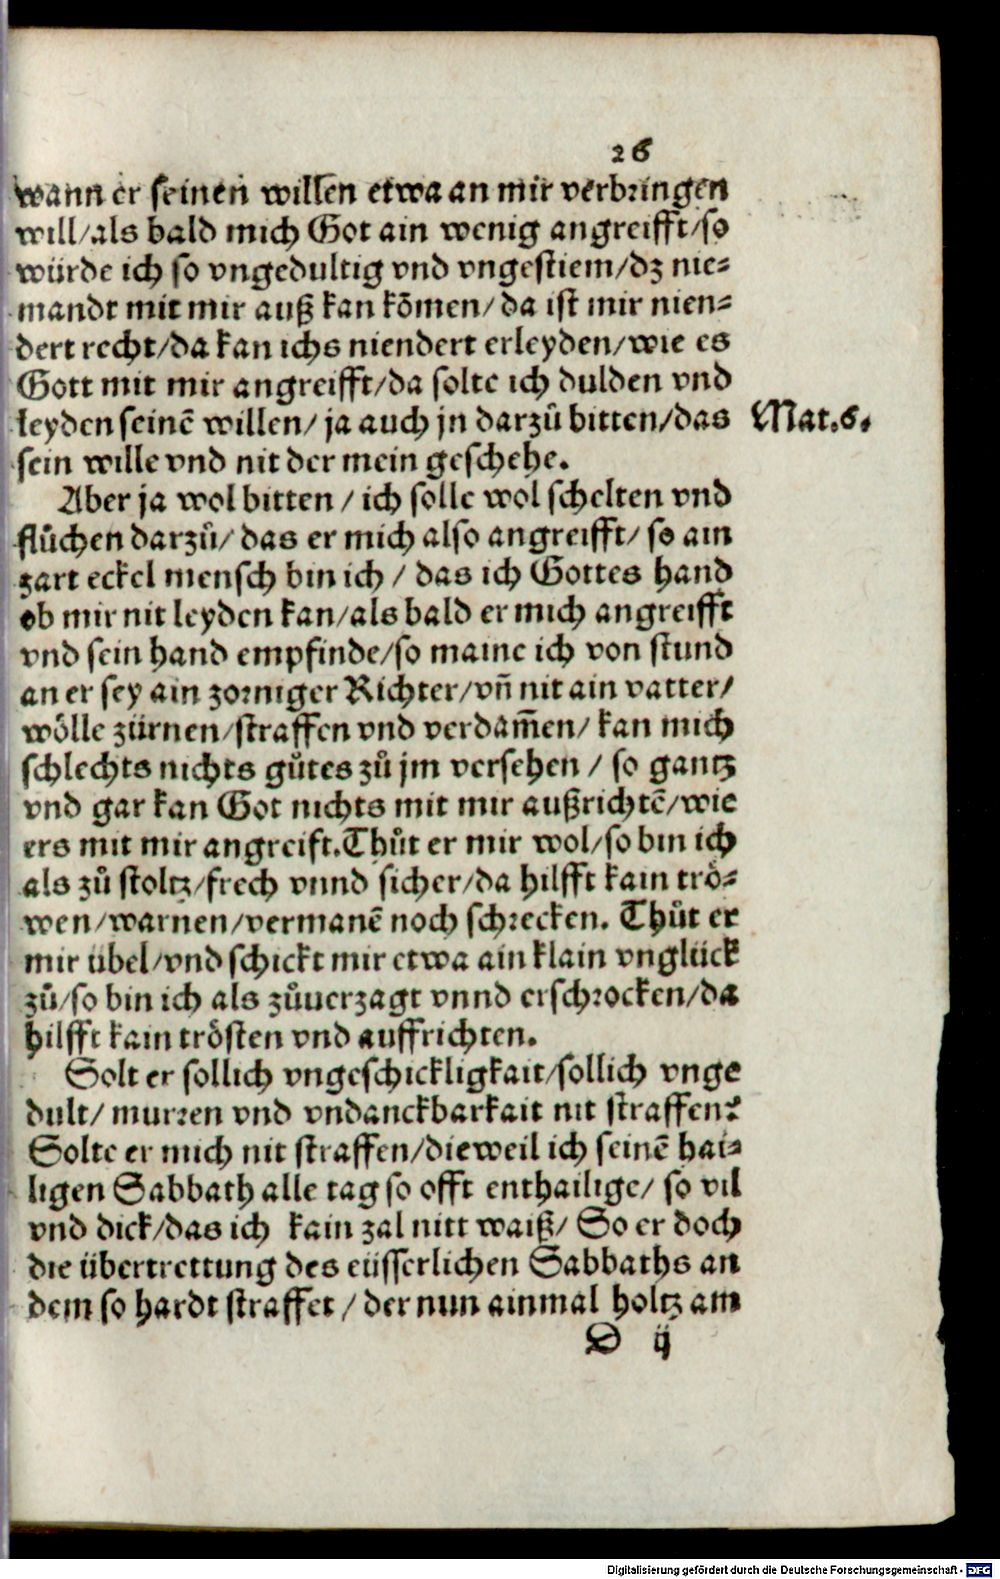 26
wann er seinen willen etwa an mir verbringen
will/als bald mich Got ain wenig angreifft/so
würde ich so vngedultig vnd vngestiem/dz nie-
mandt mit mir auß kan kōmen/da ist mir nien-
dert recht/da kan ichs niendert erleyden/wie es
Gott mit mir angreifft/da solte ich dulden vnd
leyden seinē willen/ ja auch jn darzů bitten/das
Mat.6.
sein wille vnd nit der mein geschehe.
Aber ja wol bitten / ich solle wol schelten vnd
flůchen darzů/ das er mich also angreifft/ so ain
zart eckel mensch bin ich / das ich Gottes hand
ob mir nit leyden kan/als bald er mich angreifft
vnd sein hand empfinde/so maine ich von stund
an er sey ain zorniger Richter/vñ nit ain vatter/
wölle zürnen/straffen vnd verdam̄en/ kan mich
schlechts nichts gůtes zů jm versehen / so gantz
vnd gar kan Got nichts mit mir außrichtē/wie
ers mit mir angreift.Thůt er mir wol/so bin ich
als zů stoltz/frech vnnd sicher/da hilfft kain trö-
wen/warnen/vermanē noch schrecken. Thůt er
mir übel/vnd schickt mir etwa ain klain vnglück
zů/so bin ich als zůuerzagt vnnd erschrocken/da
hilfft kain trösten vnd auffrichten.
Solt er sollich vngeschickligkait/sollich vnge
dult/ murren vnd vndanckbarkait nit straffen?
Solte er mich nit straffen/dieweil ich seinē hai-
ligen Sabbath alle tag so offt enthailige/ so vil
vnd dick/das ich kain zal nitt waiß/ So er doch
die übertrettung des eüsserlichen Sabbaths an
dem so hardt straffet / der nun ainmal holtz am
D ij
Digitalisierung gefördert durch die Deutsche Forschungsgemeinschaft - DFG